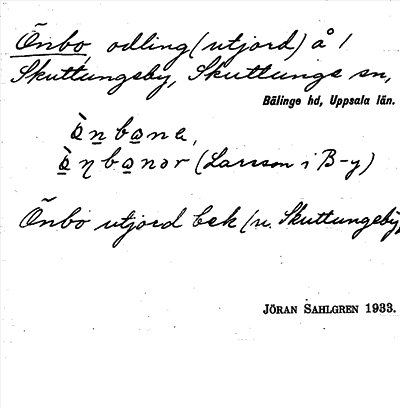 Önbo, odling (utjord) å /
Skuttungeby, Skuttunge sn,
Bälinge hd, Uppsala län.
ò̱ṉbo̱na,
ò̱ηbo̱nər (Larsson i B-y)
Önbo utjord bek (u. Skuttungeby,
JÖRAN SAHLGREN 1933.